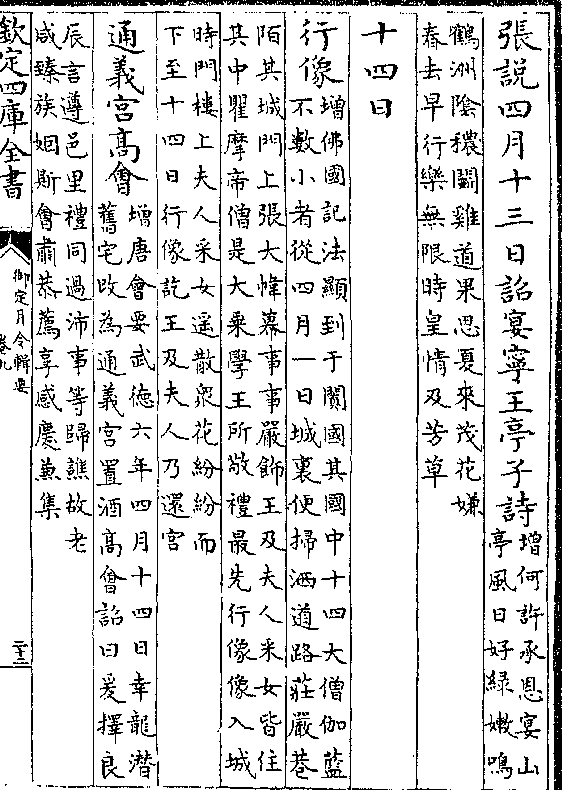 張說四月十三日詔宴寧王亭子詩增何許承恩宴山
亭風日好綠嫩鳴
鶴洲陰穠鬬雞道果思夏來茂花嫌
春去早行樂無限時皇情及芳草
十四日
行像增佛國記法顯到于闐國其國中十四大僧伽藍
不數小者從四月一日城裏便掃洒道路莊嚴巷
陌其城門上張大幃幕事事嚴飾王及夫人采女皆住
其中瞿摩帝僧是大乘學王所敬禮最先行像像入城
時門樓上夫人采女遥散衆花紛紛而
下至十四日行像訖王及夫人乃還宫
通義宫髙㑹增唐㑹要武徳六年四月十四日幸龍潜
舊宅改為通義宫置酒髙㑹詔曰爰擇良
辰言遵邑里禮同過沛事等歸譙故老
咸臻族姻斯㑹肅恭薦享感慶兼集
欽定四庫全書
御定月令輯要
卷九
二十二